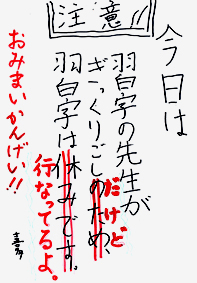 注意!!
今日は
習字の先生が
ぎっくりごしのため、
だけど
習字は休みです。
行なってるよ。
おみまいかんげい!!